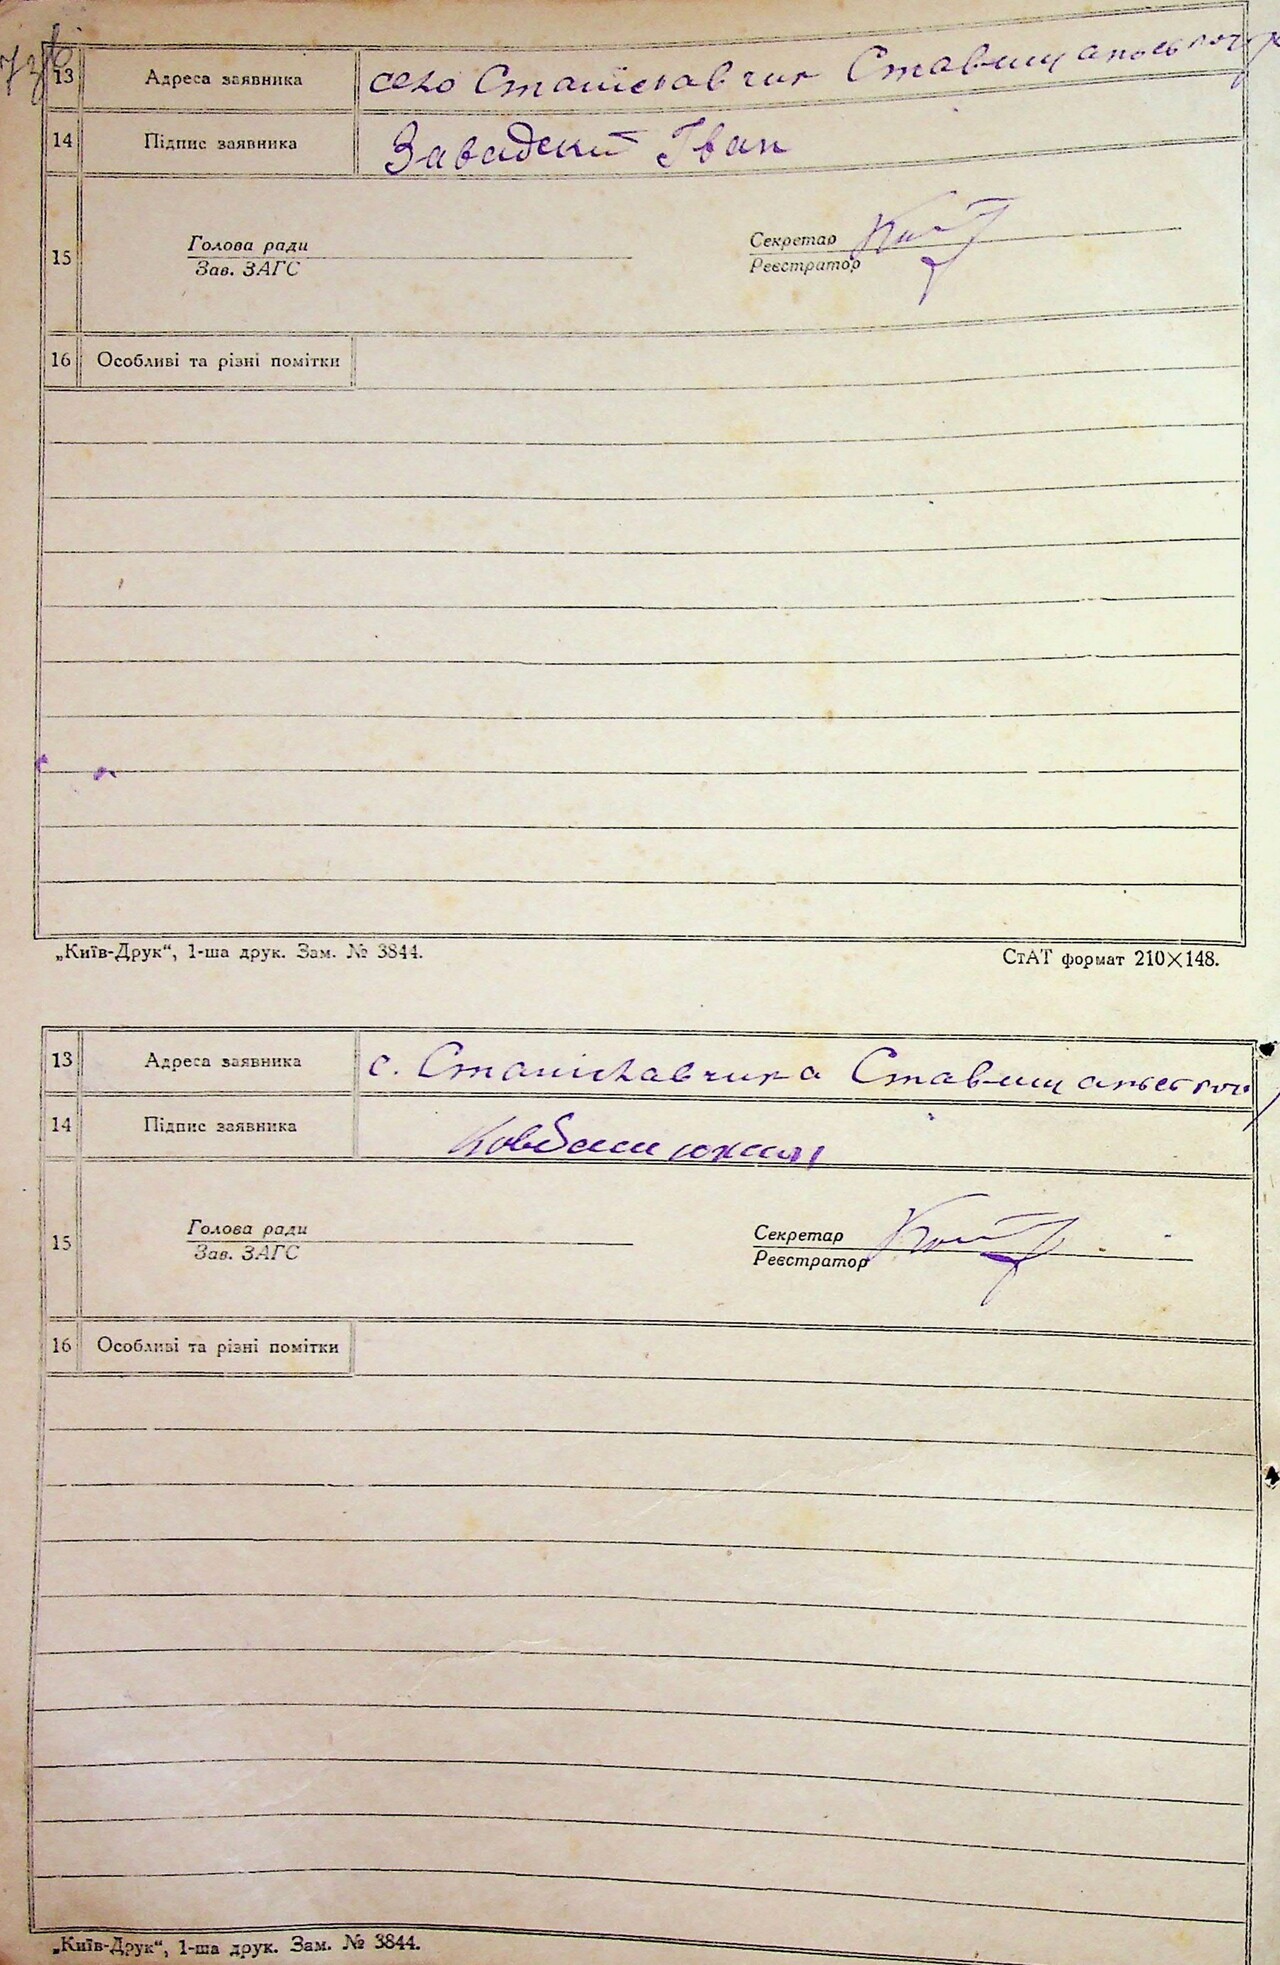 13 Адреса заявника село Станіславчик Ставищанського р
14 Підпис заявника Завадский Іван
15 Голова ради Секретар
Зав. ЗАГС Реєстратор
16 Особливі та різні помітки
„Київ-Друк“, 1-ша друк. Зам. № 3844. СтАТ формат 210×148.
13 Адреса заявника с. Станіславчика Ставищанського
14 Підпис заявника
15 Голова ради Секретар
Зав. ЗАГС Реєстратор
16 Особливі та різні помітки
„Київ-Друк“, 1-ша друк. Зам. № 3844.